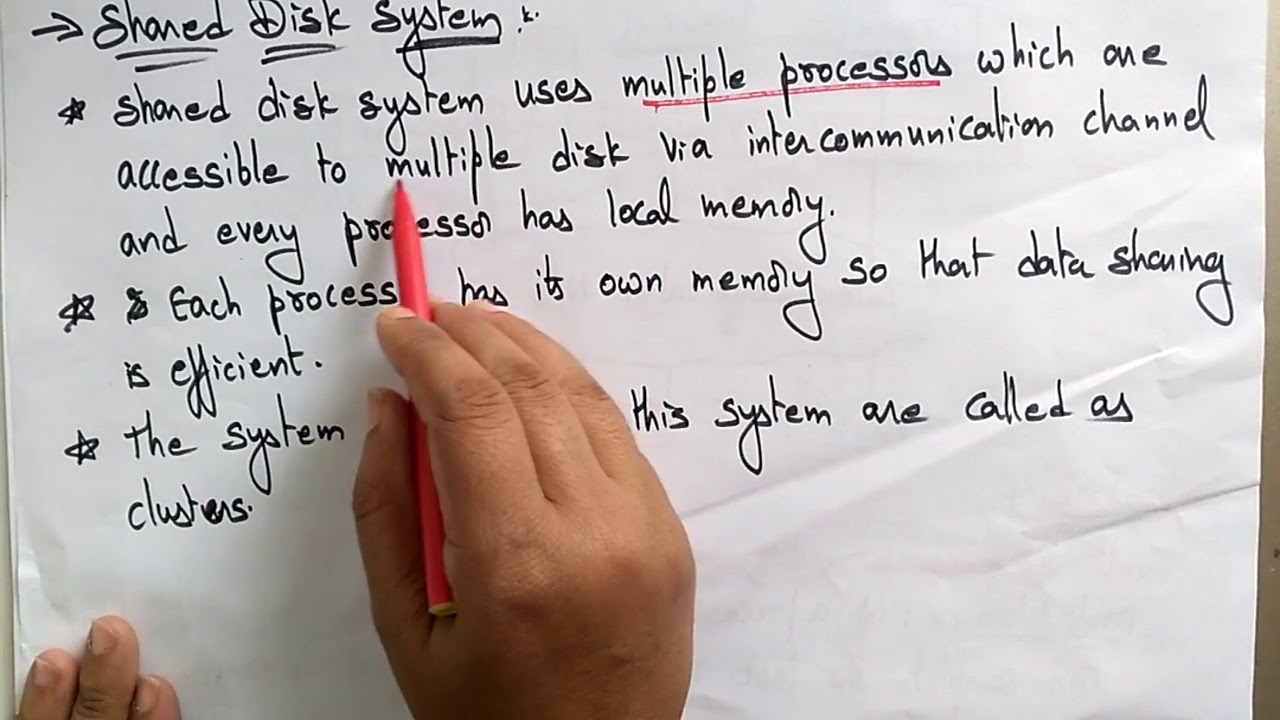 → Shared Disk System :
* Shared disk system uses multiple processors which are
accessible to multiple disk via intercommunication channel
and every processor has local memory.
* Each process has its own memory so that data sharing
is efficient.
* The system this system are called as
clusters.